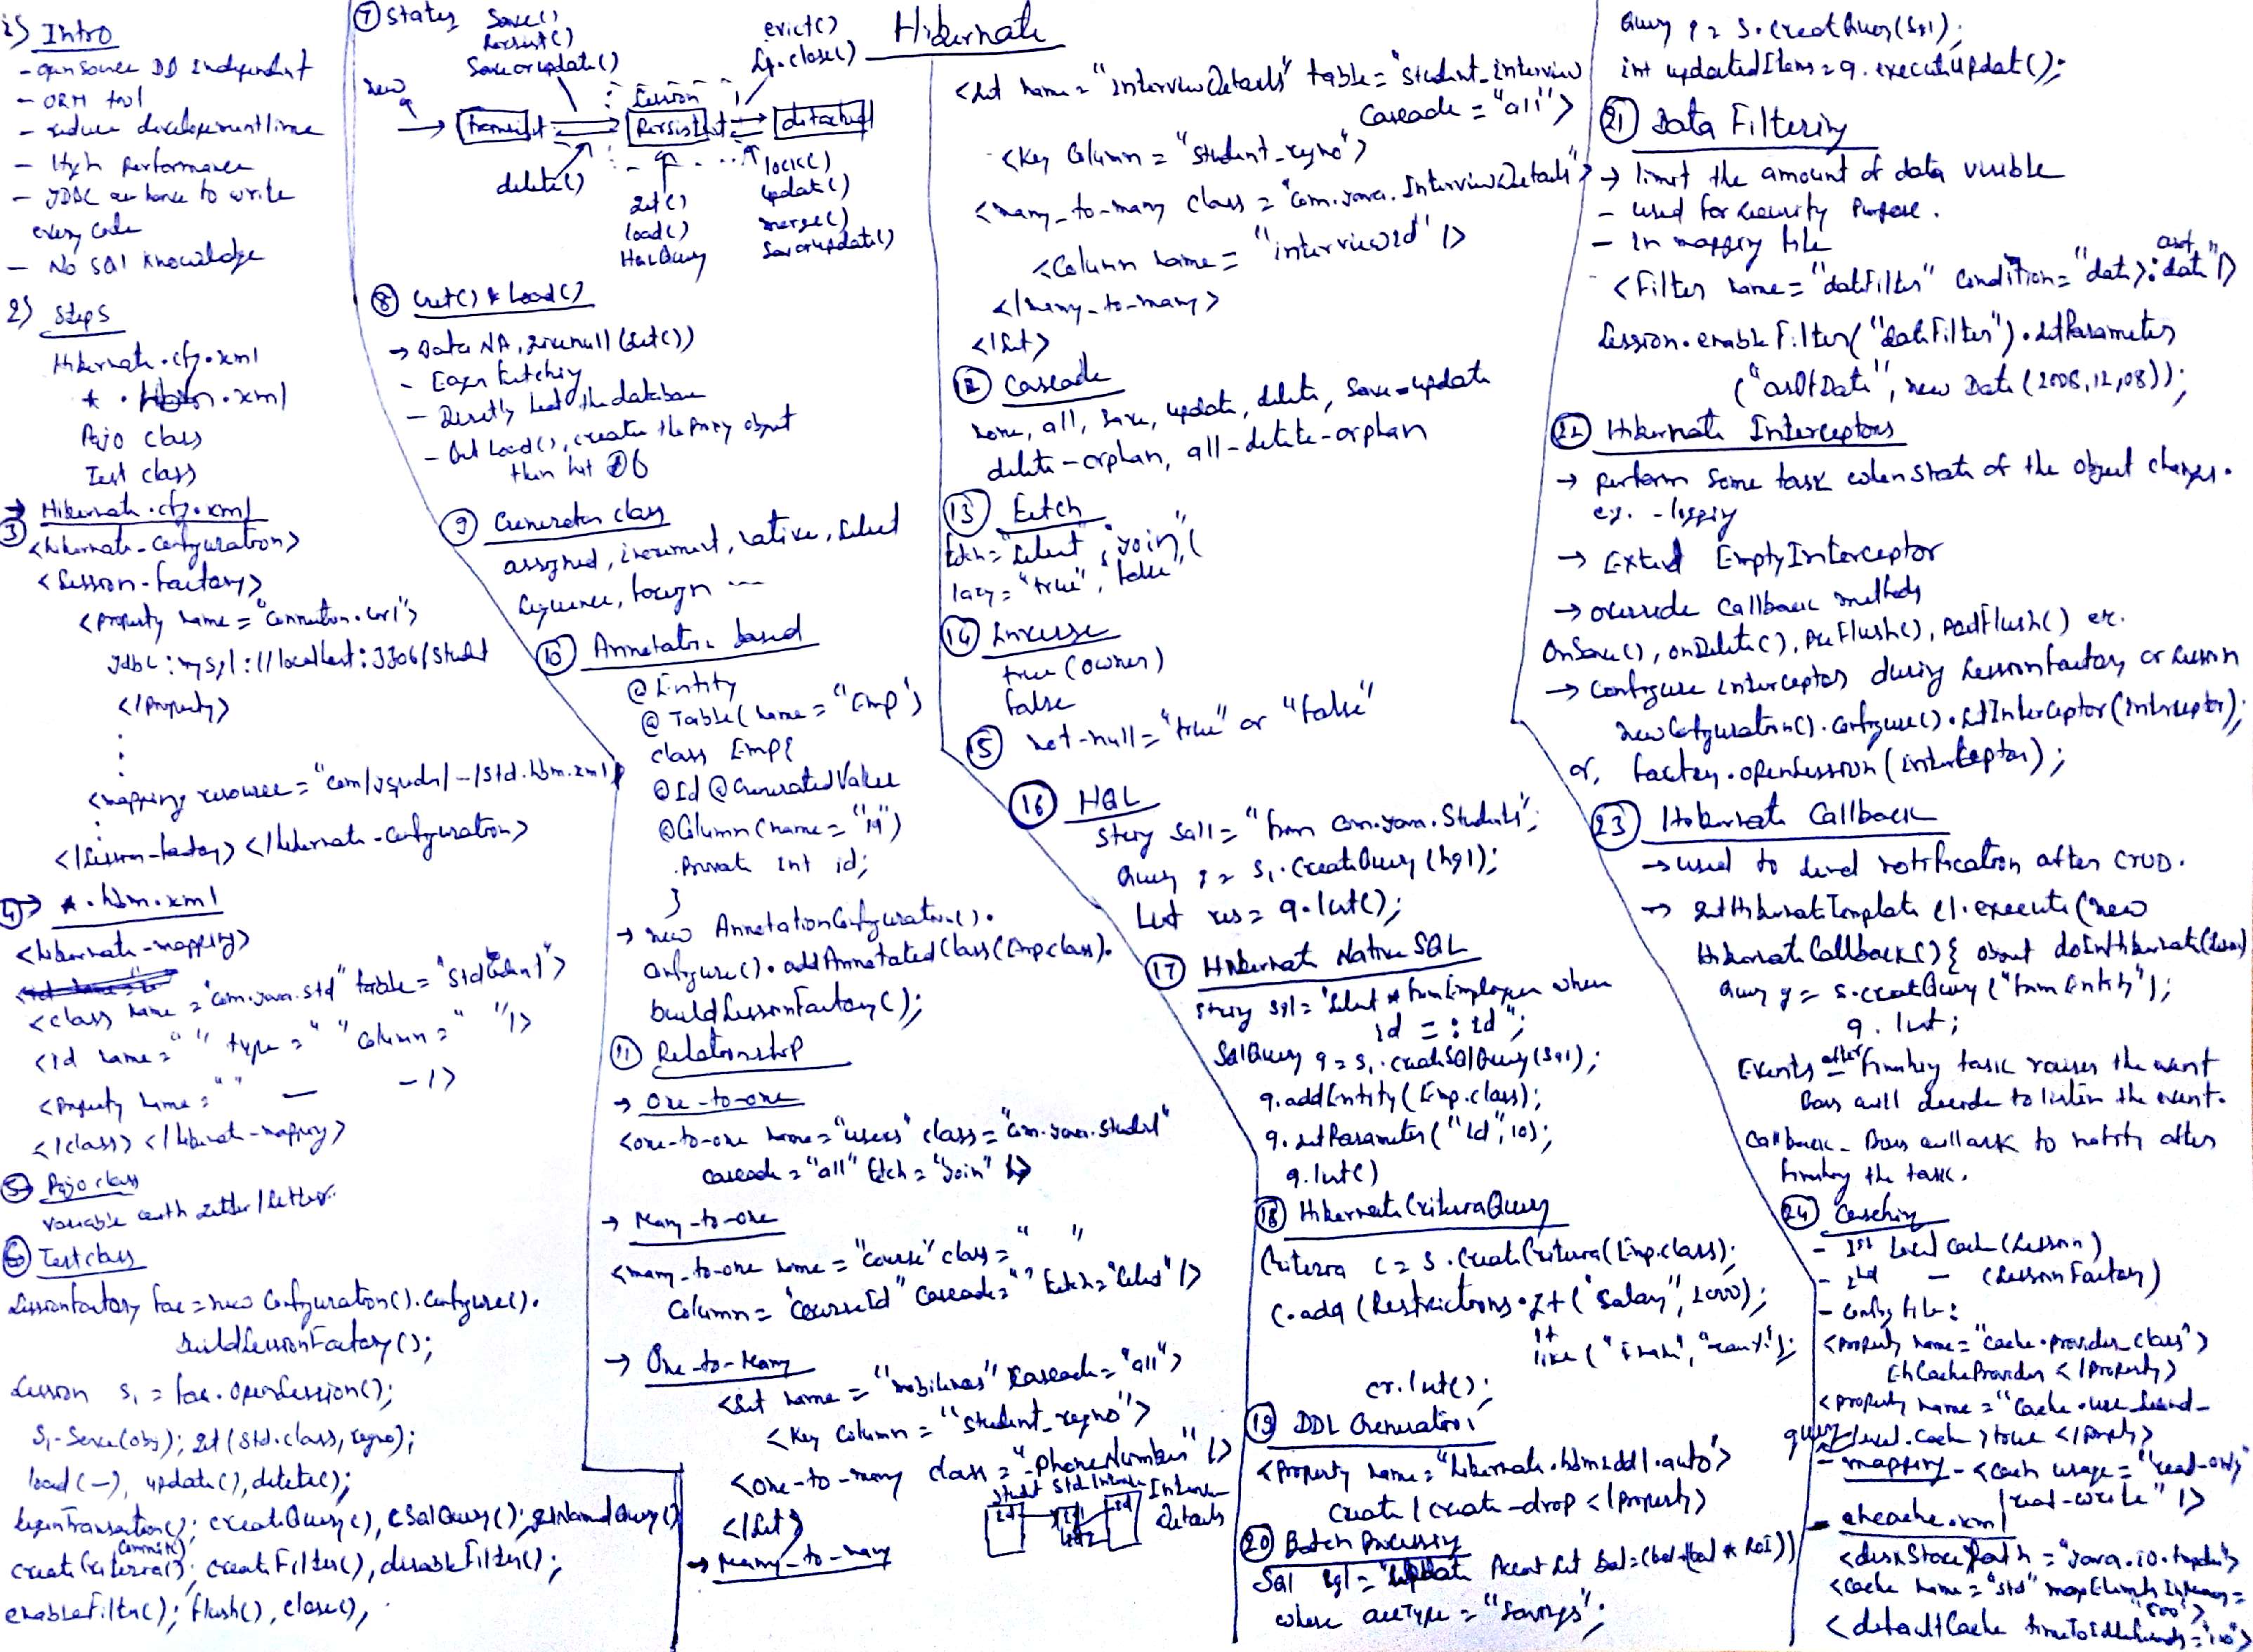 Hibernate
1) Intro
- open source DB independent
- ORM tool
- reduce developement time
- High Performance
- JDBC we have to write
every code
- No SQL knowledge
2) Steps
Hibernate.cfg.xml
*.hbm.xml
Pojo class
Test class
③ Hibernate.cfg.xml
<hibernate-configuration>
<session-factory>
<property name="connection.url">
jdbc:mysql://localhost:3306/student
</property>
<mapping resource="com/ /-/std.hbm.xml">
</session-factory> </hibernate-configuration>
④ → *.hbm.xml
<hibernate-mapping>
<class name="com.java.std" table="stdtudent">
<id name=" " type=" " column=" "/>
<property name=" " — -/>
</class> </hibernate-mapping>
⑤ Pojo class
variable with getter/setter.
⑥ Test class
SessionFactory fac = new Configuration().configure().
buildSessionFactory();
Session s1 = fac.openSession();
s1.save(obj); get(std.class, regno);
load(-), update(), delete();
beginTransaction(); createQuery(), cSqlQuery(); getNamedQuery()
commit()
createCriteria(); createFilter(), disableFilter();
enableFilter(); flush(), close(),
⑦ States
save()
persist()
saveorupdate()
evict()
close()
new
Session
transient
Persistent
detached
delete()
get()
load()
HQLQuery
lock()
update()
merge()
saveorupdate()
⑧ get() & load()
→ Data NA, give null (get())
- Eager fetching
- Directly hit the database
- But load(), creates the proxy object
then hit DB
⑨ Generator class
assigned, increment, native, select
sequence, foreign ...
⑩ Annotation based
@Entity
@Table(name="Emp")
class Emp{
@Id @GeneratedValue
@Column(name="id")
private int id;
}
→ new AnnotationConfiguration().
configure().addAnnotatedClass(Emp.class).
buildSessionFactory();
⑪ Relationship
→ One-to-one
<one-to-one name="users" class="com.java.Student"
cascade="all" fetch="join" />
→ Many-to-one
<many-to-one name="course" class=" "
column="courseId" cascade=" " fetch="select"/>
→ One-to-Many
<set name="mobilenos" cascade="all">
<key column="student_regno">
<one-to-many class="-PhoneNumber"/>
</set>
→ Many-to-many
Interview
details
<set name="interviewDetails" table="student_interview
cascade="all">
<key column="student_regno">
<many-to-many class="com.java.InterviewDetails">
<column name="interviewId"/>
</many-to-many>
</set>
⑫ Cascade
none, all, save, update, delete, save-update
delete-orphan, all-delete-orphan
⑬ Fetch
fetch="select", "join",
lazy="true", "false"
⑭ Inverse
true (owner)
false
⑮ not-null="true" or "false"
⑯ HQL
String sall="from com.java.Students";
Query q = s1.createQuery(hql);
List res = q.list();
⑰ Hibernate Native SQL
String sql="select * from Employee where
id = :id";
SqlQuery q = s1.createSQLQuery(sql);
q.addEntity(Emp.class);
q.setParameter("id",10);
q.list()
⑱ Hibernate CriteriaQuery
Criteria c = s.createCriteria(Emp.class);
c.add(Restrictions.gt("salary",2000);
lt
like
cr.list();
⑲ DDL Generation
<property name="hibernate.hbm2ddl.auto">
create/create-drop </property>
⑳ Batch Processing
Sql sql="update Account set bal=(bal+(bal*ROI))
where accType="savings";
Query q = s.createQuery(sql);
int updatedItems = q.executeUpdate();
㉑ Data Filtering
→ limit the amount of data visible
- used for security purpose.
- In mapping file
<filter name="dateFilter" condition="date>:date"/>
Session.enableFilter("dateFilter").setParameter
("asOfDate", new Date(2008,12,08));
㉒ Hibernate Interceptors
→ perform some task when state of the object changes.
eg. - logging
→ Extend EmptyInterceptor
→ override callback methods
onSave(), onDelete(), preFlush(), postFlush() etc.
→ configure interceptor during sessionfactory or session
new Configuration().configure().setInterceptor(interceptor);
or, factory.openSession(interceptor);
㉓ Hibernate Callback
→ used to send notification after CRUD.
→ getHibernateTemplate().execute(new
HibernateCallback(){ object doInHibernate(Session)
Query q = s.createQuery("from Entity");
q.list;
Events after finishing task raises the event
Boss will decide to listen the event.
Callback - Boss will ask to notify after
finishing the task.
㉔ Caching
- 1st Level Cache (Session)
- 2nd — (SessionFactory)
- config file:
<property name="cache.provider_class">
EhCacheProvider </property>
<property name="cache.use_second_
query level.cache>true </property>
- mapping - <cache usage="read-only
/read-write"/>
- ehcache.xml
<diskStore path="java.io.tmpdir">
<cache name="std" maxElementsInMemory=
"500">
<defaultCache timeToIdleSeconds="